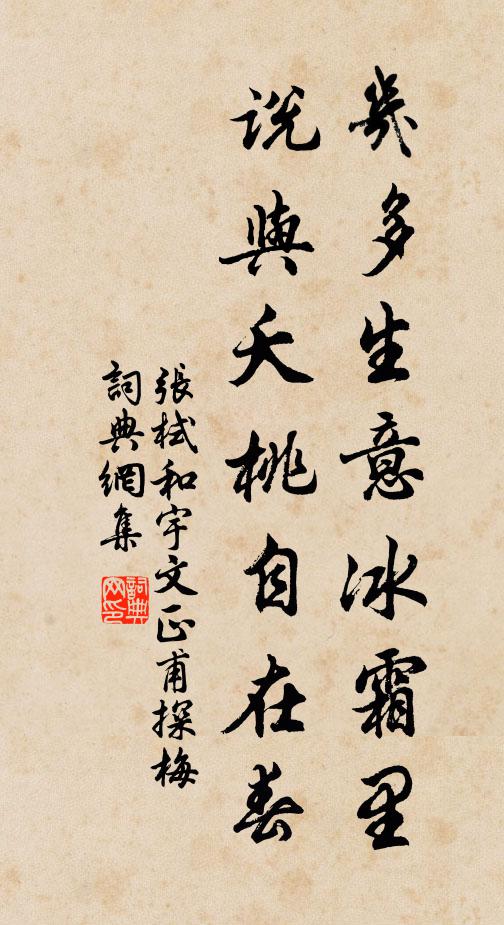 幾多生意冰霜里
說與夭桃自在春
張栻和宇文正甫探梅
詞典網集
詞典網印